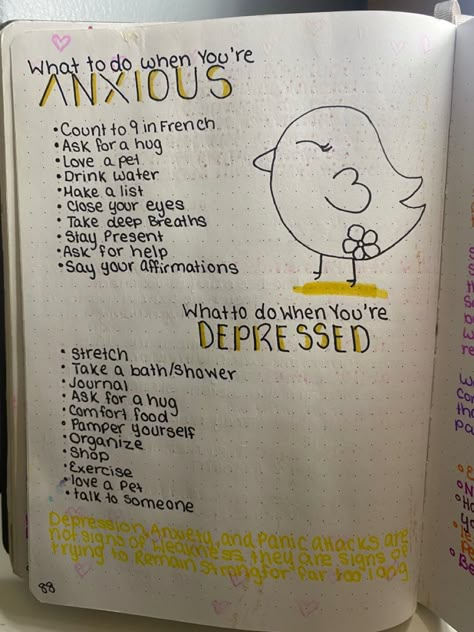 What to do when You're
ANXIOUS
• Count to 9 in French
• Ask for a hug
• Love a pet
• Drink water
• Make a list
• Close your eyes
• Take deep Breaths
• Stay Present
• Ask for help
• Say your affirmations
What to do When You're
DEPRESSED
• Stretch
• Take a bath/shower
• Journal
• Ask for a hug
• Comfort food
• Pamper yourself
• Organize
• Shop
• Exercise
• love a Pet
• talk to Someone
Depression, Anxiety, and Panic attacks are
not signs of Weakness. they are signs of
trying to Remain strong for far too long
88